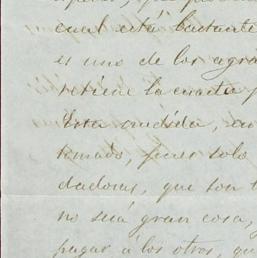 cual está bastante
es uno de los agra
retiene la cuarta p
Esta medida, au
tomado, pues solo
dadoras, que son t
no será gran cosa,
pagar á los otros, qu